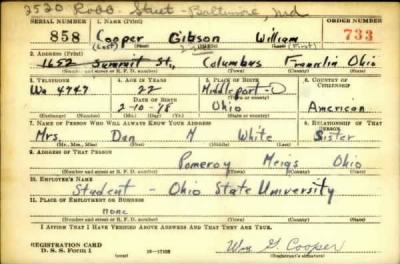 2520 Robb Street - Baltimore, Md
SERIAL NUMBER 1. NAME (Print) ORDER NUMBER
858 Cooper Gibson William 733
(Last) (First)
2. ADDRESS (Print)
1652 Summit St., Columbus Franklin Ohio
(Number and street or R. F. D. number) (Town) (County) (State)
3. TELEPHONE 4. AGE IN YEARS 5. PLACE OF BIRTH 6. COUNTRY OF CITIZENSHIP
Wa 4747 22 Middleport-O
DATE OF BIRTH (Town or county)
2-10-18 Ohio American
(Mo.) (Day) (Yr.) (State or country)
7. NAME OF PERSON WHO WILL ALWAYS KNOW YOUR ADDRESS 8. RELATIONSHIP OF THAT PERSON
Mrs. Dan M White Sister
(Mr., Mrs., Miss) (First) (Middle) (Last)
9. ADDRESS OF THAT PERSON
Pomeroy Meigs Ohio
(Number and street or R. F. D. number) (Town) (County) (State)
10. EMPLOYER'S NAME
Student - Ohio State University
11. PLACE OF EMPLOYMENT OR BUSINESS
none
(Number and street or R. F. D. number) (Town) (County) (State)
I AFFIRM THAT I HAVE VERIFIED ABOVE ANSWERS AND THAT THEY ARE TRUE.
REGISTRATION CARD
D. S. S. Form 1 Wm G. Cooper
(over) (Registrant's signature)